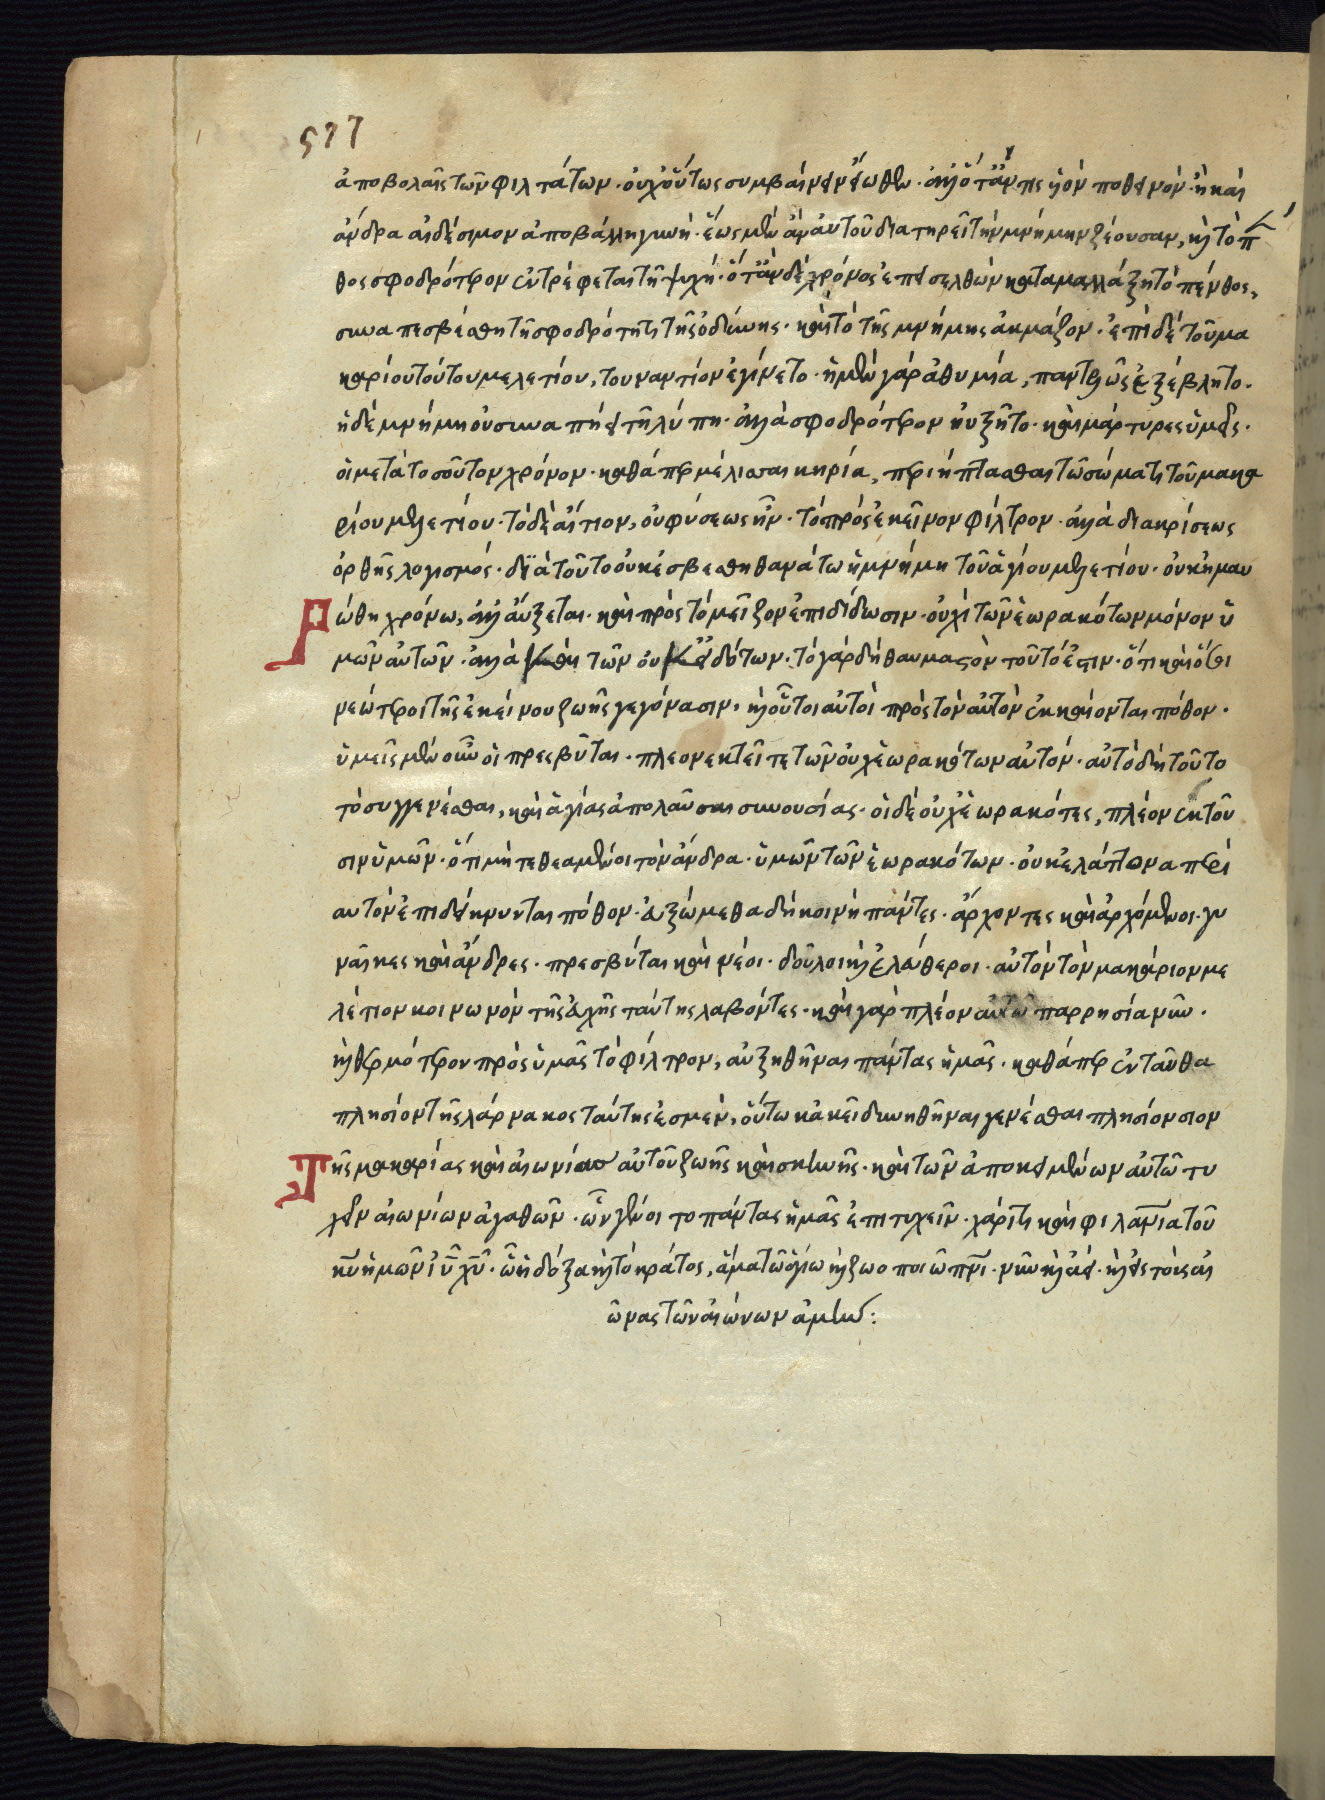 577
ἀποβολαῖς τῶν φιλτάτων· οὐχ οὕτως συμβαίνειν εἴωθεν· ἀλλ' ὅτἄν τις υἱὸν ποθεινὸν· ἢ καὶ
ἄνδρα αἰδέσιμον ἀποβάλλη γυνὴ· ἕως μὲν ἂν αὐτοῦ διατηρεῖ τὴν μνήμην ζέουσαν, καὶ τὸ π
θος σφοδρότερον ἐντρέφεται τῆ ψυχῆ· ὅτἂν δὲ χρόνος ἐπεισελθὼν καταμαλλάξη τὸ πένθος,
συναπεσβέσθη τῆ σφοδρότητι τῆς ὀδύνης· καὶ τὸ τῆς μνήμης ἀκμάζον· ἐπὶ δὲ τοῦ μα
καρίου τούτου μελετίου, τουναντίον ἐγίνετο· ἡ μὲν γὰρ ἀθυμία, παντελῶς ἐξέβλητο·
ἡ δὲ μνήμη οὐ συναπήει τῆ λύπη· ἀλλὰ σφοδρότερον ηὐξῆτο· καὶ μάρτυρες ὑμεῖς·
οἱ μετὰ τοσοῦτον χρόνον· καθάπερ μέλισσαι κηρία, περιήπτασθαι τῶ σώματι τοῦ μακα
ρίου μελετίου· τὸ δὲ αἴτιον, οὐ φύσεως ἦν· τὸ πρὸς ἐκεῖνον φίλτρον· ἀλλὰ διακρίσεως
ὀρθῆς λογισμός· διὰ τοῦτο οὐκ ἐσβέσθη θανάτω ἡ μνήμη τοῦ ἁγίου μελετίου· οὐκ ἠμαυ
ρώθη χρόνω, ἀλλ' αὔξεται· καὶ πρὸς τὸ μεῖζον ἐπιδίδωσιν· οὐχὶ τῶν ἑωρακότων μόνον ὑ
μῶν αὐτῶν· ἀλλὰ καὶ τῶν οὐκ εἰδότων· τὸ γὰρ δὴ θαυμαστὸν τοῦτό ἐστιν· ὅτι καὶ ὅσοι
νεώτεροι τῆς ἐκείνου ζωῆς γεγόνασιν, καὶ οὗτοι αὐτοὶ πρὸς τὸν αὐτὸν ἐκκαίονται πόθον·
ὑμεῖς μὲν οὖν οἱ πρεσβῦται· πλεονεκτεῖτε τῶν οὐχ ἑωρακότων αὐτόν· αὐτὸ δὴ τοῦτο
τὸ συγγενέσθαι, καὶ ἁγίας ἀπολαῦσαι συνουσίας· οἱ δὲ οὐχ ἑωρακότες, πλέον ἐκ τοῦ
σιν ὑμῶν· ὅτι μὴ τεθεαμένοι τὸν ἄνδρα· ὑμῶν τῶν ἑωρακότων· οὐκ ἐλάττονα περὶ
αυτὸν ἐπιδείκνυνται πόθον· εὐξώμεθα δὴ κοινῆ πάντες· ἄρχοντες καὶ ἀρχόμενοι· γυ
ναῖκες καὶ ἄνδρες· πρεσβύται καὶ νέοι· δοῦλοι καὶ ἐλεύθεροι· αὐτὸν τὸν μακάριον με
λέτιον κοινωνὸν τῆς εὐχῆς ταύτης λαβόντες· καὶ γὰρ πλέον αὐτῶ παρρησία νῦν·
καὶ θερμότερον πρὸς ὑμᾶς τὸ φίλτρον, αὐξηθῆναι πάντας ἡμᾶς· καθάπερ ἐνταῦθα
πλησίον τῆς λάρνακος ταύτης ἐσμὲν, οὕτω κἀκεῖ δυνηθῆναι γενέσθαι πλησίον σιον
Τῆς μακαρίας καὶ αἰωνίας αὐτοῦ ζωῆς καὶ σκηνῆς· καὶ τῶν ἀποκειμένων αὐτῶ τυ
χεῖν αἰωνίων ἀγαθῶν· ὧν γένοιτο πάντας ἡμᾶς ἐπιτυχεῖν· χάριτι καὶ φιλανία τοῦ
κυ ἡμῶν ιυ χυ· ὧ ἡ δόξα καὶ τὸ κράτος, ἅμα τῶ ἁγίω καὶ ζωοποιῶ πνι· νῦν καὶ ἀεί· καὶ εἰς τοὺς αἰ
ῶνας τῶν αἰώνων ἀμήν: